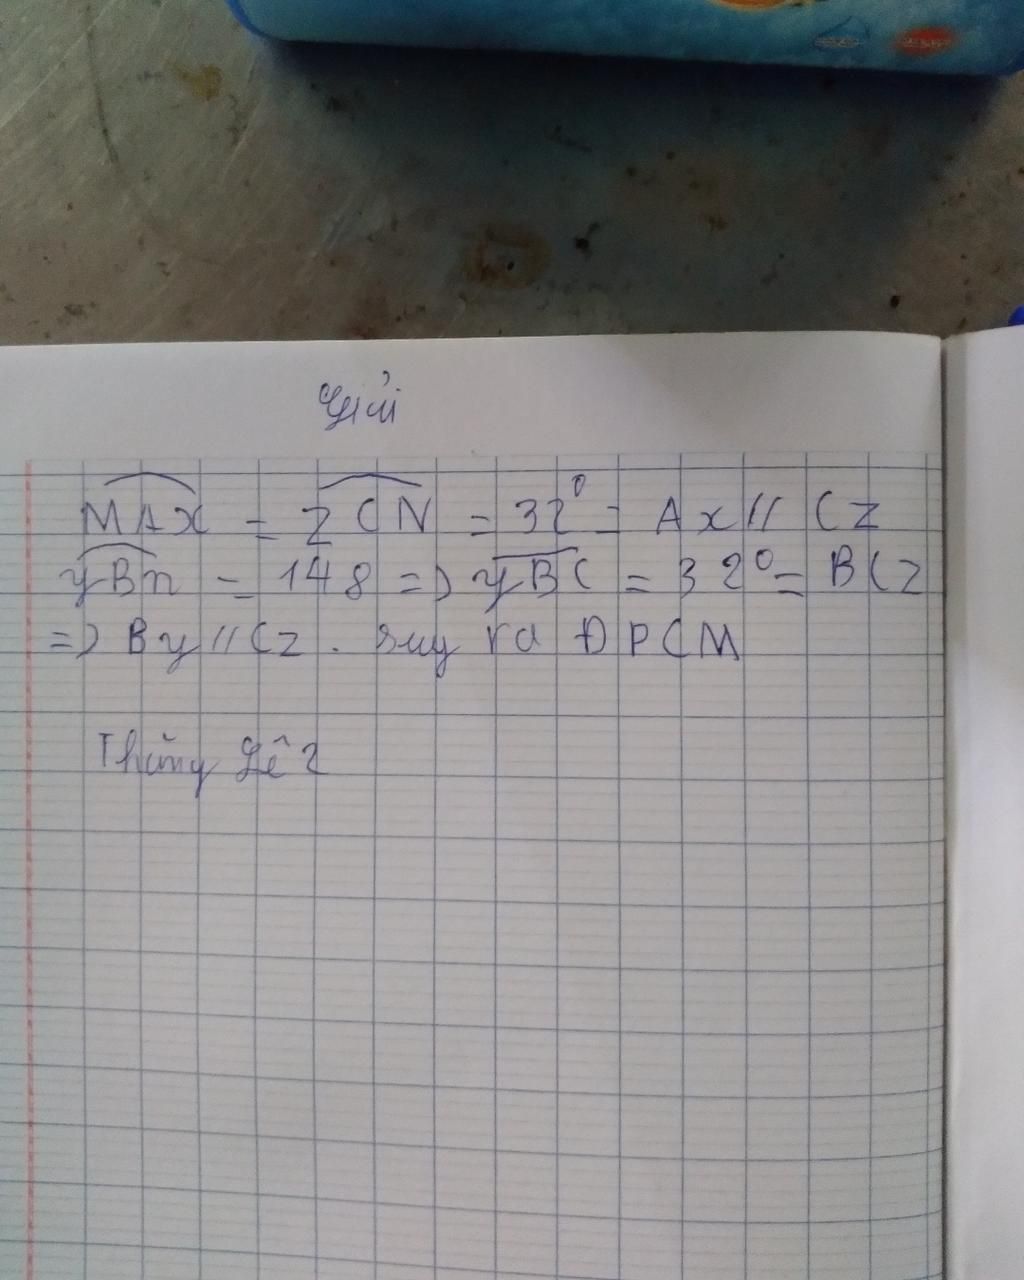 Giải
MAX = ZCN = 32° = Ax // Cz
yBn = 148 => yBC = 32° = BCz
=> By // Cz . suy ra ĐPCM